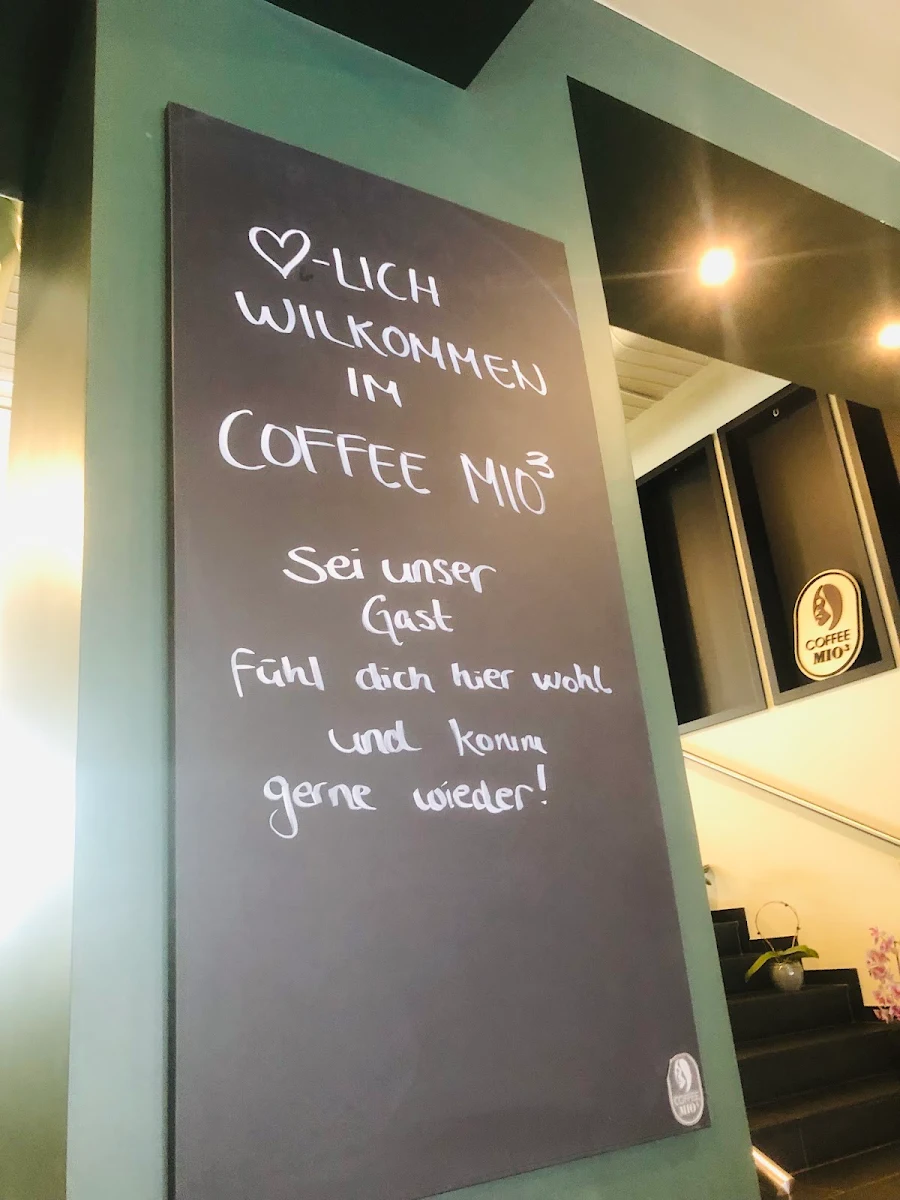 ♡-LICH
WILKOMMEN
IM
COFFEE MIO³
Sei unser
Gast
Fühl dich hier wohl
und komm
gerne wieder!
COFFEE
MIO³
COFFEE
MIO³